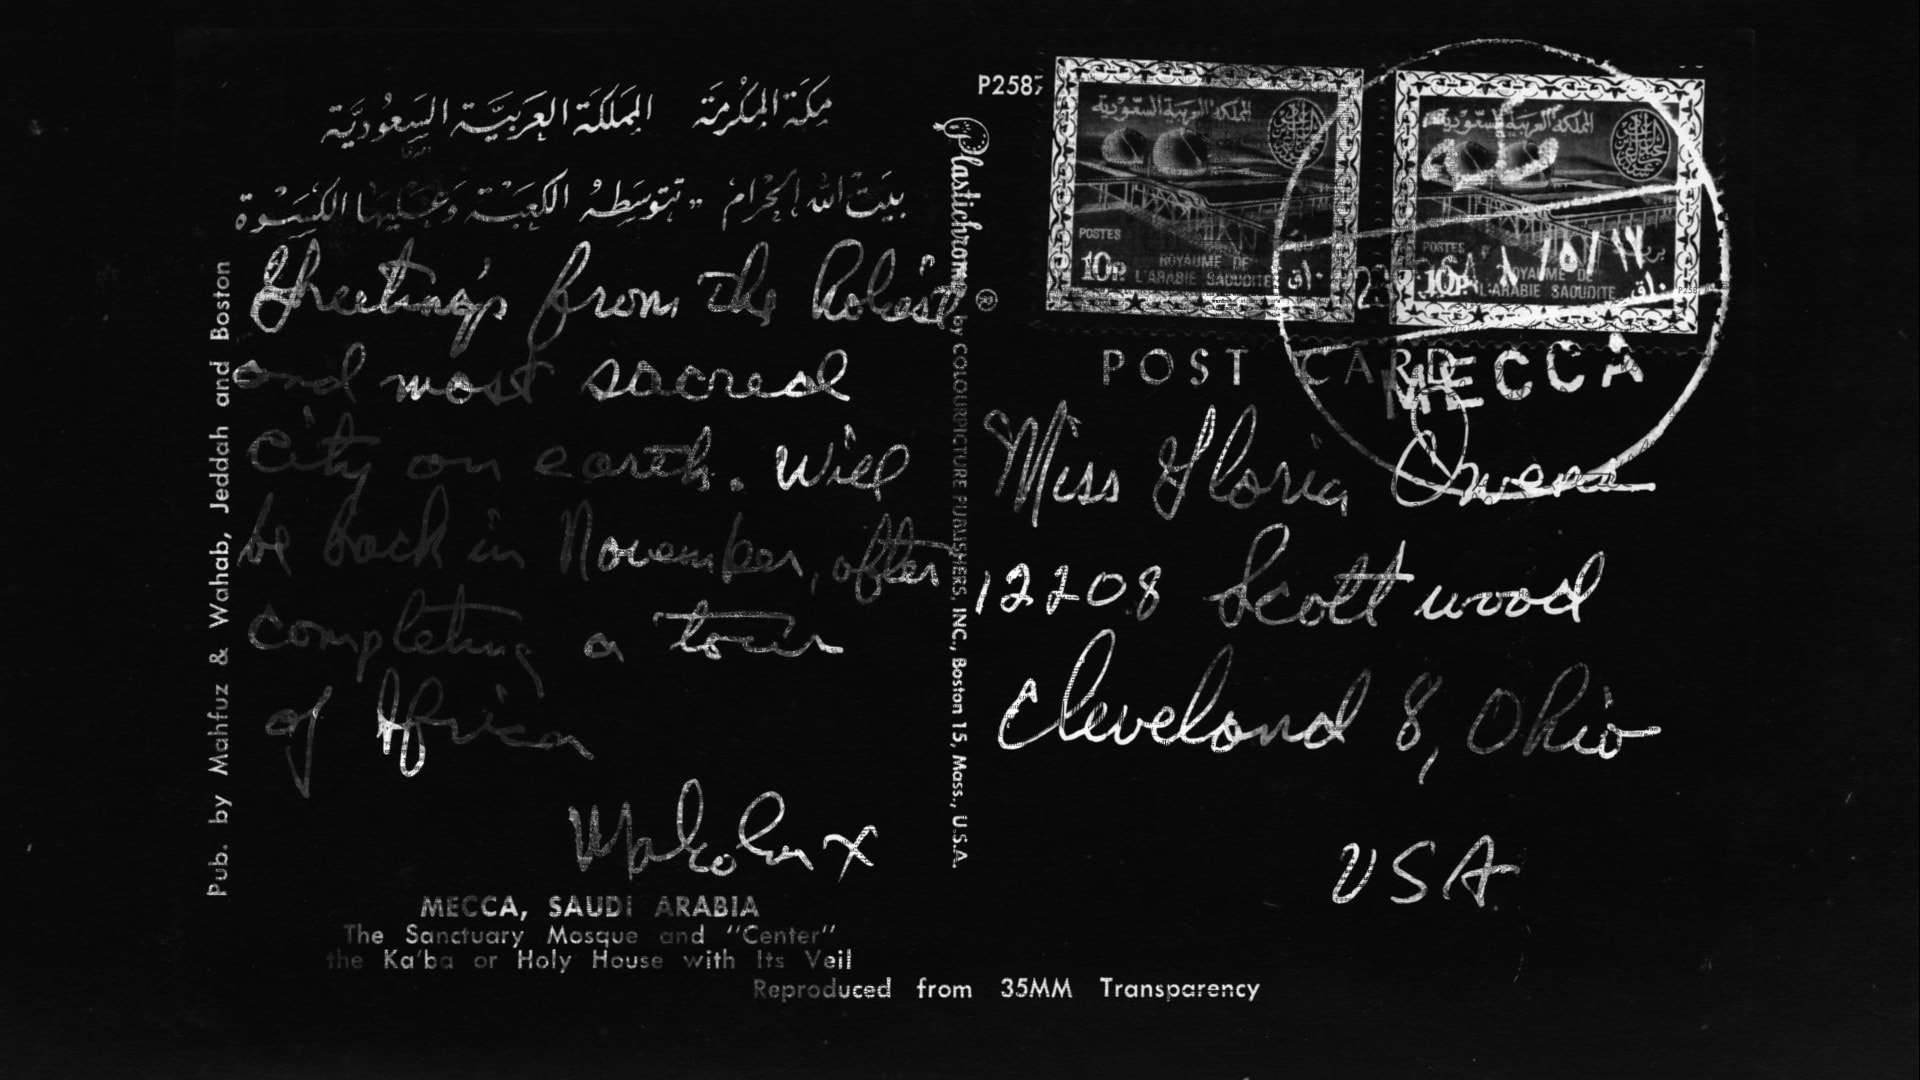 مكة المكرمة المملكة العربية السعودية
بيت الله الحرام تتوسطه الكعبة وعليها الكسوة
Greeting's from the holiest
and most sacred
city on earth. Will
be back in November, after
completing a tour
of Africa
Malcolm X
MECCA, SAUDI ARABIA
The Sanctuary Mosque and "Center"
the Ka'ba or Holy House with Its Veil
Reproduced from 35MM Transparency
Pub. by Mahfuz & Wahab, Jeddah and Boston
Plastichrome ® by COLOURPICTURE PUBLISHERS, INC., Boston 15, Mass., U.S.A.
P2587
المملكة العربية السعودية
POSTES
10P.
ROYAUME DE
L'ARABIE SAOUDITE
المملكة العربية السعودية
POSTES
10P.
ROYAUME DE
L'ARABIE SAOUDITE
MECCA
POST CARD
Miss Gloria Owens
12208 Scottwood
Cleveland 8, Ohio
USA